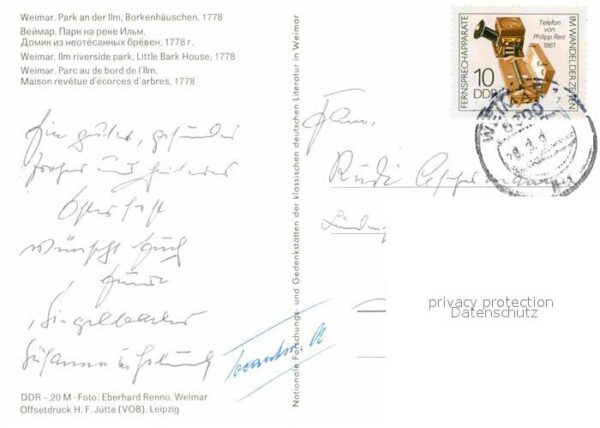 Weimar. Park an der Ilm, Borkenhäuschen, 1778
Веймар. Парк на реке Ильм,
Домик из неотёсанных брёвен, 1778 г.
Weimar. Ilm riverside park, Little Bark House, 1778
Weimar. Parc au de bord de l'Ilm,
Maison revêtue d'écorces d'arbres, 1778
Ein gutes, gesundes
frohes und heiteres
Osterfest
wünscht Euch
Susanne
DDR –,20 M · Foto: Eberhard Renno, Weimar
Offsetdruck H. F. Jütte (VOB), Leipzig
Nationale Forschungs- und Gedenkstätten der klassischen deutschen Literatur in Weimar
FERNSPRECHAPPARATE
IM WANDEL DER ZEITEN
Telefon
von
Philipp Reis
1861
10
DDR
WEIMAR
5300
Fam.
Rudi
privacy protection
Datenschutz